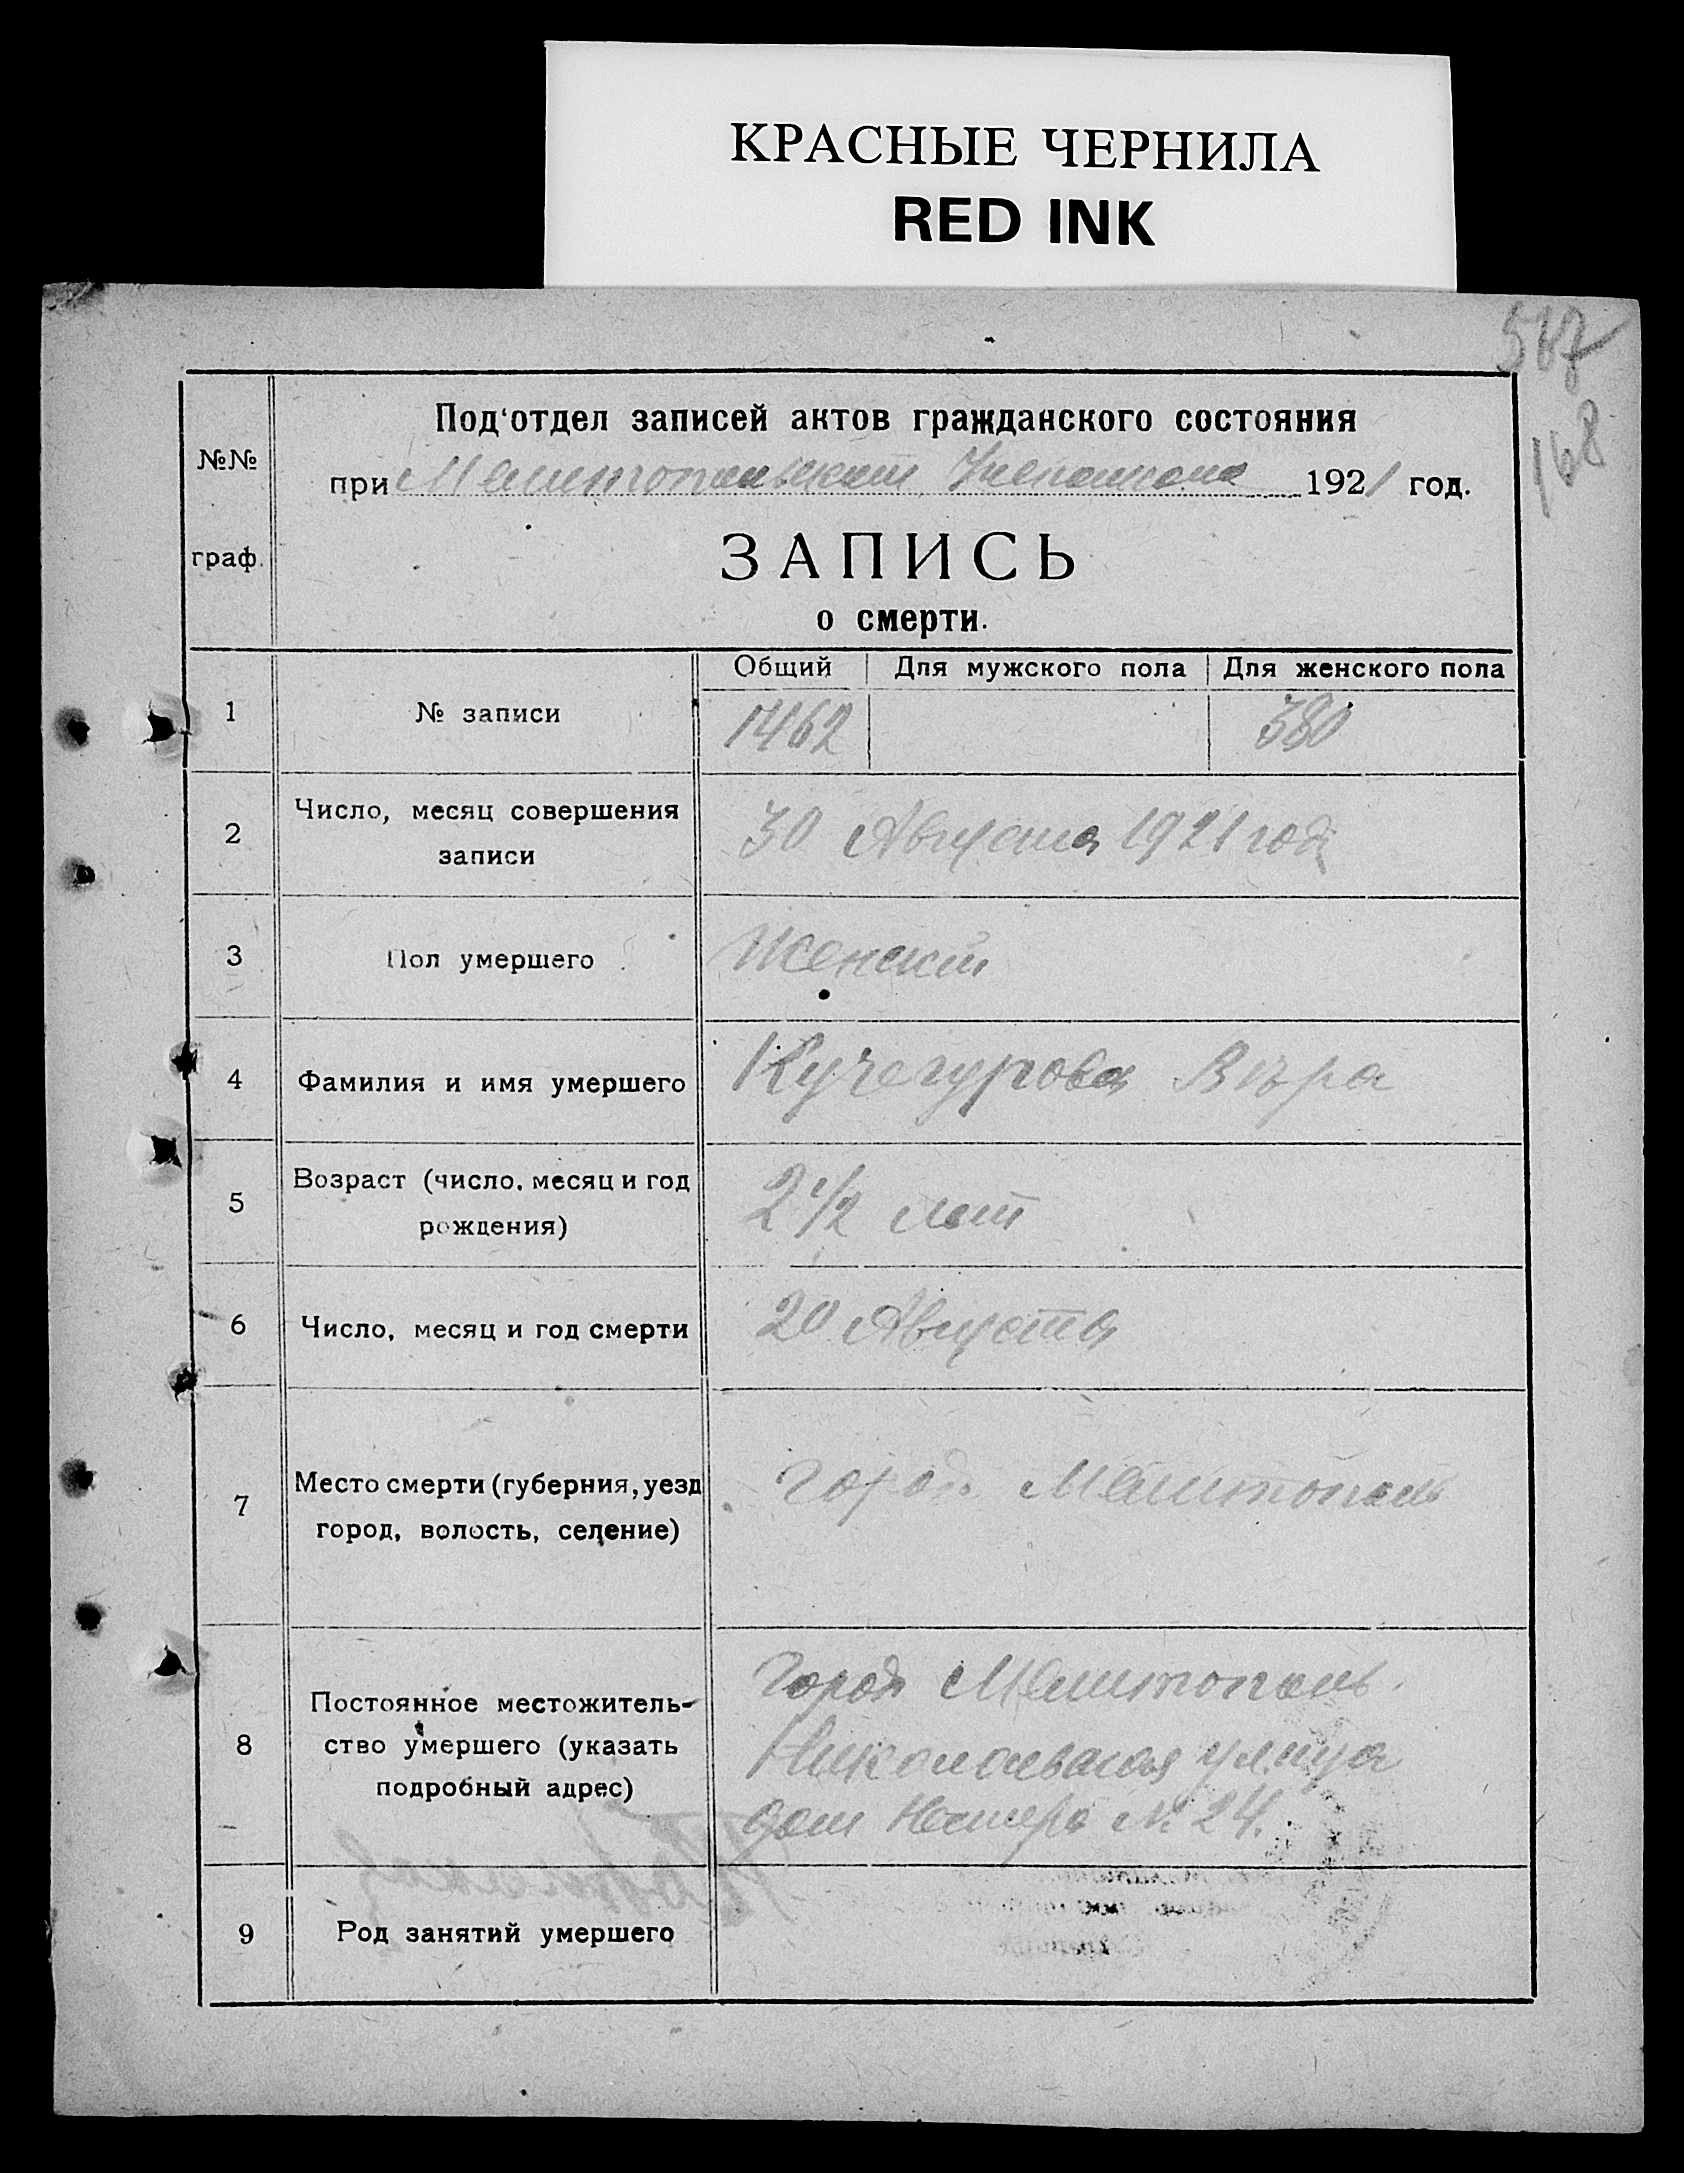 КРАСНЫЕ ЧЕРНИЛА
RED INK
168
№№
граф.
Под'отдел записей актов гражданского состояния
при Мелитопольском 1921 год.
ЗАПИСЬ
о смерти.
Общий Для мужского пола Для женского пола
1 № записи 1462 380
2 Число, месяц совершения
записи
30 Августа 1921 года
3 Пол умершего Женский
4 Фамилия и имя умершего Кучегурова Вѣра
5 Возраст (число, месяц и год
рождения)
2 1/2 лет
6 Число, месяц и год смерти 20 Августа
7 Место смерти (губерния, уезд
город, волость, селение)
город Мелитополь
8 Постоянное местожитель-
ство умершего (указать
подробный адрес)
Город Мелитополь.
Николаевская улица
дом Номера № 24.
9 Род занятий умершего